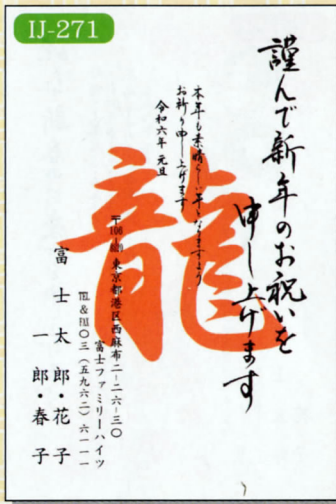 IJ-271
謹んで新年のお祝いを
申し上げます
本年も素晴らしい年となりますよう
お祈り申し上げます
令和六年 元旦
龍
〒106-
東京都港区西麻布二-二六-三〇
富士ファミリーハイツ
TEL&FAX〇三(五九六二)六一一一
富士太郎・花子
一郎・春子